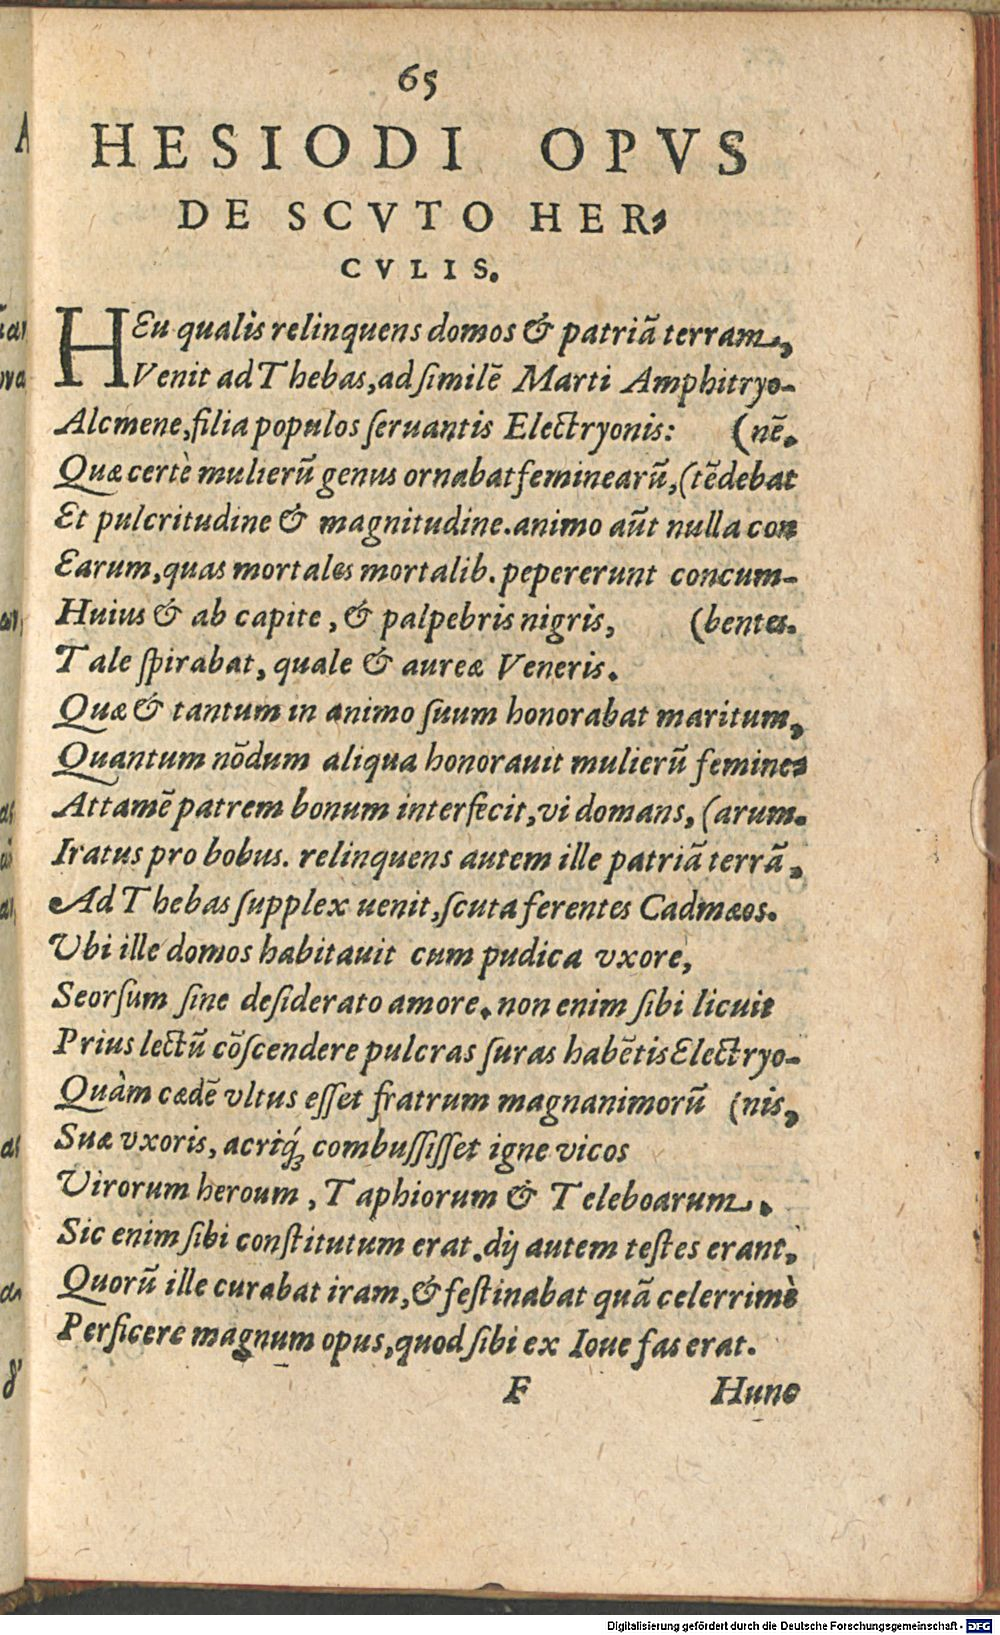 65
HESIODI OPVS
DE SCVTO HER-
CVLIS.
HEu qualis relinquens domos & patriā terram,
Venit ad Thebas, ad similē Marti Amphitryo-
Alcmene, filia populos seruantis Electryonis: (nē.
Quæ certè mulierū genus ornabat feminearū, (tēdebat
Et pulcritudine & magnitudine. animo aūt nulla con
Earum, quas mortales mortalib. pepererunt concum-
Huius & ab capite, & palpebris nigris, (bentes.
Tale spirabat, quale & aureæ Veneris.
Quæ & tantum in animo suum honorabat maritum,
Quantum nōdum aliqua honorauit mulierū femine-
Attamē patrem bonum interfecit, vi domans, (arum.
Iratus pro bobus. relinquens autem ille patriā terrā,
Ad Thebas supplex uenit, scuta ferentes Cadmæos.
Vbi ille domos habitauit cum pudica vxore,
Seorsum sine desiderato amore. non enim sibi licuit
Prius lectū cōscendere pulcras suras habētis Electryo-
Quàm cædē vltus esset fratrum magnanimorū (nis,
Suæ vxoris, acriq́ꝫ combussisset igne vicos
Virorum heroum, Taphiorum & Teleboarum.
Sic enim sibi constitutum erat. dij autem testes erant,
Quorū ille curabat iram, & festinabat quā celerrimè
Perficere magnum opus, quod sibi ex Ioue fas erat.
F Hunc
Digitalisierung gefördert durch die Deutsche Forschungsgemeinschaft - DFG